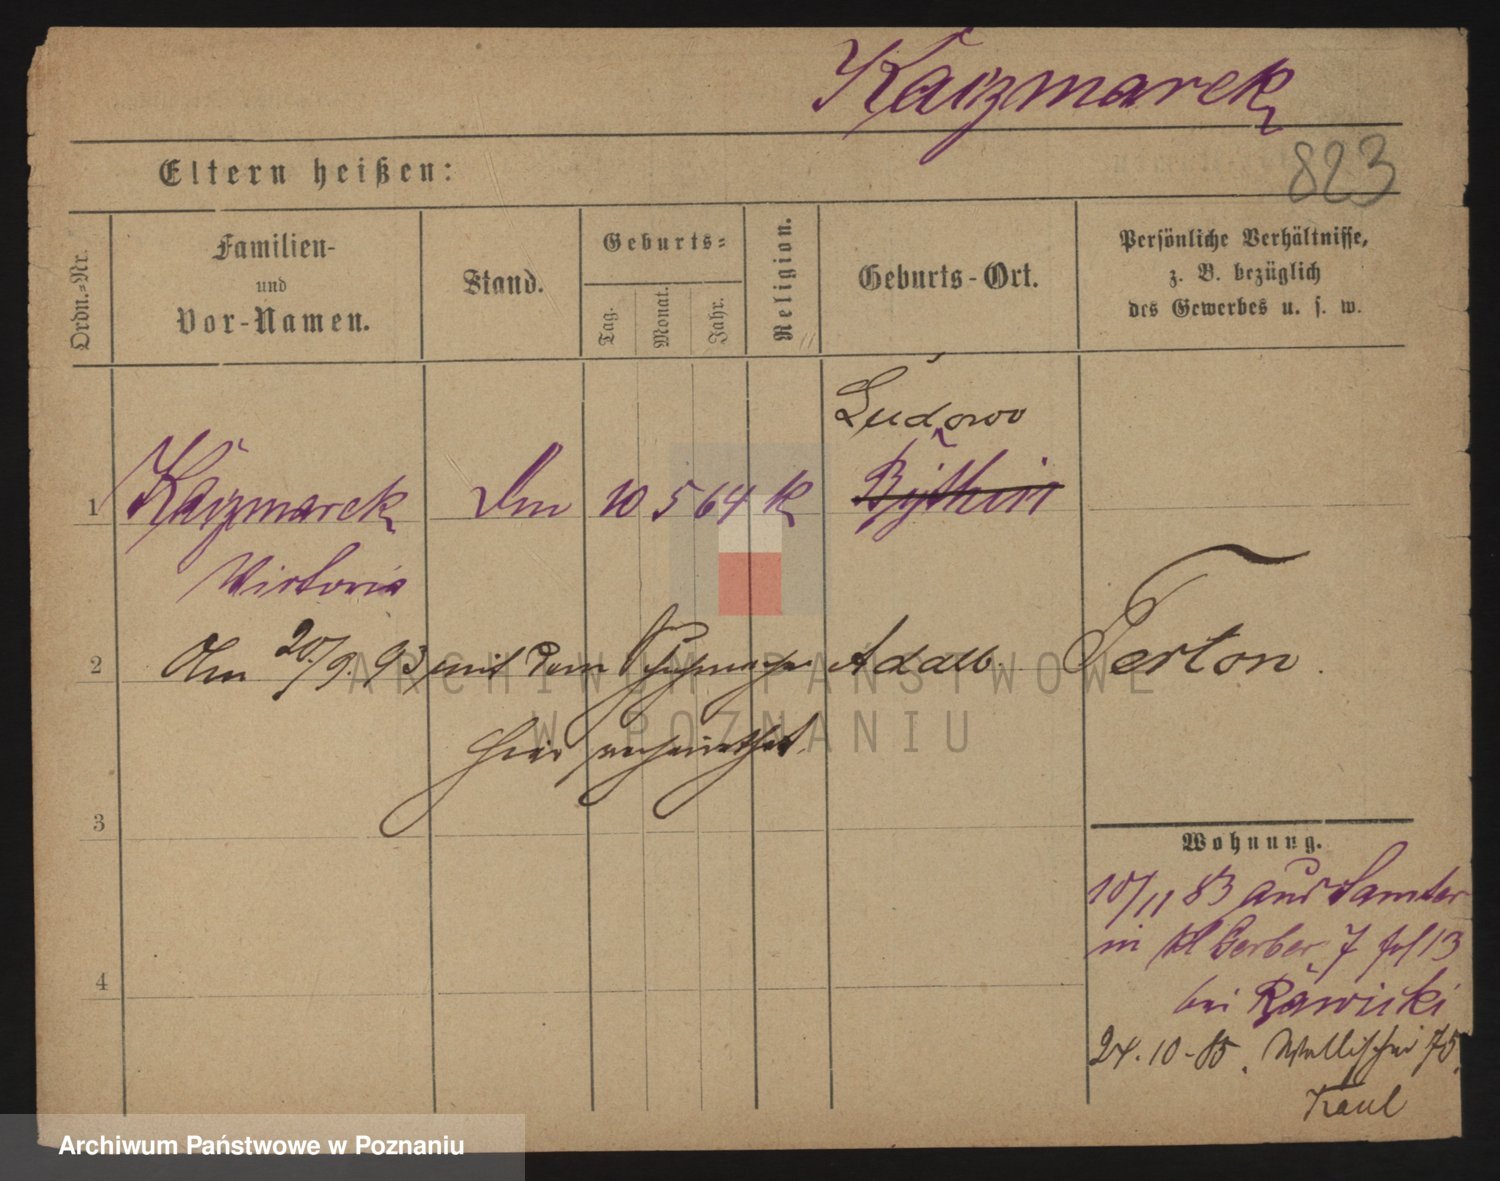 Kaczmarek
823
Eltern heißen:
Ordn.-Nr.
Familien-
und
Vor-Namen.
Stand.
Geburts-
Tag.
Monat.
Jahr.
Religion.
Geburts-Ort.
Persönliche Verhältnisse,
z. B. bezüglich
des Gewerbes u. s. w.
Ludowo
1 Kaczmarek Dm 10 5 64 k Bythin
Victoria
2 Am 20/9.93 mit dem Schuhmacher Adalb. Terton.
hier verheirathet.
3
4
Wohnung.
10/11 83 aus Samter
in kl Gerber 7 fol 13
bei Rawicki
24.10-85. Wallischei 75.
Kaul
ARCHIWUM PAŃSTWOWE
W POZNANIU
Archiwum Państwowe w Poznaniu